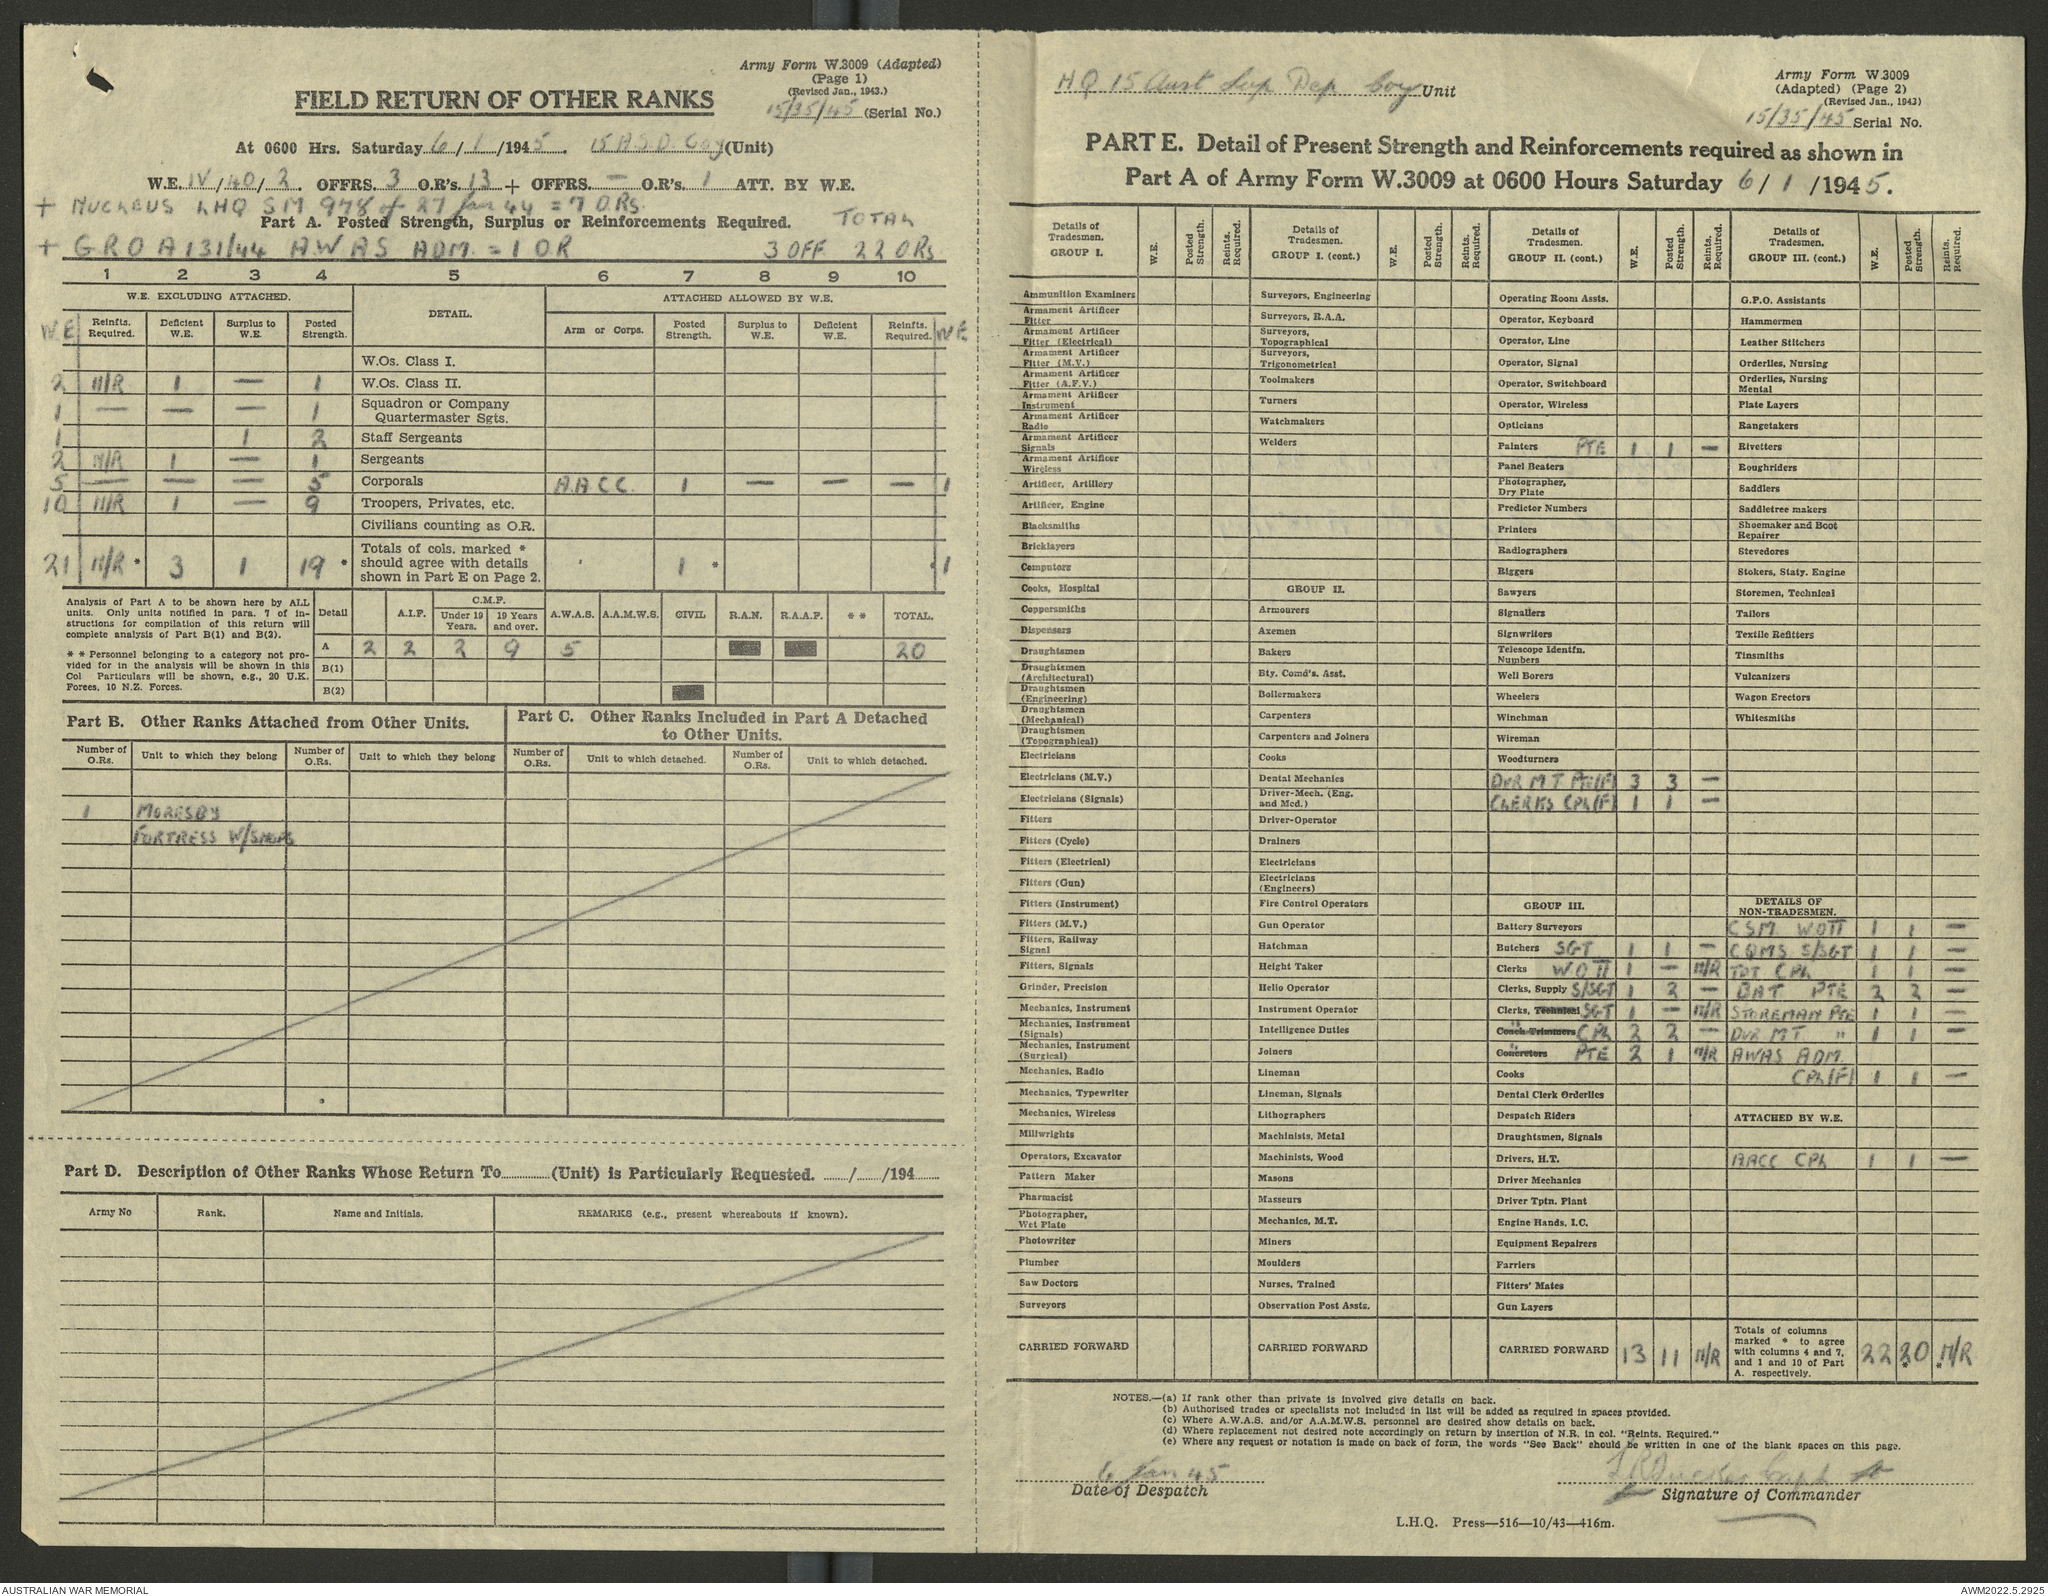 Army Form W.3009 (Adapted)
(Page 1)
(Revised Jan., 1943.)
FIELD RETURN OF OTHER RANKS
15/35/45 (Serial No.)
At 0600 Hrs. Saturday 6/1/1945. 15 A.S.D. Coy (Unit)
W.E. IV/40/2. OFFRS. 3 O.R's. 13 + OFFRS. — O.R's. 1 ATT. BY W.E.
+ NUCLEUS LHQ SM 978 of 27 Jan 44 = 7 ORs
Part A. Posted Strength, Surplus or Reinforcements Required. TOTAL
+ GRO A131/44 AWAS ADM. = 1 OR 3 OFF 22 ORs
1 2 3 4 5 6 7 8 9 10
W.E. EXCLUDING ATTACHED. DETAIL. ATTACHED ALLOWED BY W.E.
WE Reinfts. Required. Deficient W.E. Surplus to W.E. Posted Strength. Arm or Corps. Posted Strength. Surplus to W.E. Deficient W.E. Reinfts. Required. WE
W.Os. Class I.
2 N/R 1 — 1 W.Os. Class II.
1 — — — 1 Squadron or Company Quartermaster Sgts.
1 1 2 Staff Sergeants
2 N/R 1 — 1 Sergeants
5 — — — 5 Corporals A.A.C.C. 1 — — — 1
10 N/R 1 — 9 Troopers, Privates, etc.
Civilians counting as O.R.
21 N/R * 3 1 19 * Totals of cols. marked * should agree with details shown in Part E on Page 2. 1 * 1
Analysis of Part A to be shown here by ALL units. Only units notified in para. 7 of instructions for compilation of this return will complete analysis of Part B(1) and B(2).
* * Personnel belonging to a category not provided for in the analysis will be shown in this Col Particulars will be shown, e.g., 20 U.K. Forces, 10 N.Z. Forces.
Detail A.I.F. C.M.F. Under 19 Years. 19 Years and over. A.W.A.S. A.A.M.W.S. CIVIL R.A.N. R.A.A.F. * * TOTAL.
A 2 2 2 9 5 20
B(1)
B(2)
Part B. Other Ranks Attached from Other Units.
Part C. Other Ranks Included in Part A Detached to Other Units.
Number of O.Rs. Unit to which they belong Number of O.Rs. Unit to which they belong Number of O.Rs. Unit to which detached. Number of O.Rs. Unit to which detached.
1 MORESBY
FORTRESS W/SHOPS
Part D. Description of Other Ranks Whose Return To (Unit) is Particularly Requested. / /194
Army No Rank. Name and Initials. REMARKS (e.g., present whereabouts if known).
HQ 15 Aust Sup Dep Coy Unit
Army Form W.3009
(Adapted) (Page 2)
(Revised Jan., 1943)
15/35/45 Serial No.
PART E. Detail of Present Strength and Reinforcements required as shown in
Part A of Army Form W.3009 at 0600 Hours Saturday 6/1/1945.
Details of Tradesmen. GROUP I. W.E. Posted Strength. Reints. Required.
Ammunition Examiners
Armament Artificer Fitter
Armament Artificer Fitter (Electrical)
Armament Artificer Fitter (M.V.)
Armament Artificer Fitter (A.F.V.)
Armament Artificer Instrument
Armament Artificer Radio
Armament Artificer Signals
Armament Artificer Wireless
Artificer, Artillery
Artificer, Engine
Blacksmiths
Bricklayers
Computors
Cooks, Hospital
Coppersmiths
Dispensers
Draughtsmen
Draughtsmen (Architectural)
Draughtsmen (Engineering)
Draughtsmen (Mechanical)
Draughtsmen (Topographical)
Electricians
Electricians (M.V.)
Electricians (Signals)
Fitters
Fitters (Cycle)
Fitters (Electrical)
Fitters (Gun)
Fitters (Instrument)
Fitters (M.V.)
Fitters, Railway Signal
Fitters, Signals
Grinder, Precision
Mechanics, Instrument
Mechanics, Instrument (Signals)
Mechanics, Instrument (Surgical)
Mechanics, Radio
Mechanics, Typewriter
Mechanics, Wireless
Millwrights
Operators, Excavator
Pattern Maker
Pharmacist
Photographer, Wet Plate
Photowriter
Plumber
Saw Doctors
Surveyors
CARRIED FORWARD
Details of Tradesmen. GROUP I. (cont.) W.E. Posted Strength. Reints. Required.
Surveyors, Engineering
Surveyors, R.A.A.
Surveyors, Topographical
Surveyors, Trigonometrical
Toolmakers
Turners
Watchmakers
Welders
GROUP II.
Armourers
Axemen
Bakers
Bty. Comd's. Asst.
Boilermakers
Carpenters
Carpenters and Joiners
Cooks
Dental Mechanics
Driver-Mech. (Eng. and Med.)
Driver-Operator
Drainers
Electricians
Electricians (Engineers)
Fire Control Operators
Gun Operator
Hatchman
Height Taker
Helio Operator
Instrument Operator
Intelligence Duties
Joiners
Lineman
Lineman, Signals
Lithographers
Machinists, Metal
Machinists, Wood
Masons
Masseurs
Mechanics, M.T.
Miners
Moulders
Nurses, Trained
Observation Post Assts.
CARRIED FORWARD
Details of Tradesmen. GROUP II. (cont.) W.E. Posted Strength. Reints. Required.
Operating Room Assts.
Operator, Keyboard
Operator, Line
Operator, Signal
Operator, Switchboard
Operator, Wireless
Opticians
Painters PTE 1 1 —
Panel Beaters
Photographer, Dry Plate
Predictor Numbers
Printers
Radiographers
Riggers
Sawyers
Signallers
Signwriters
Telescope Identfn. Numbers
Well Borers
Wheelers
Winchman
Wireman
Woodturners
DVR MT Pte/(F) 3 3 —
CLERKS CPL(F) 1 1 —
GROUP III.
Battery Surveyors
Butchers SGT 1 1 —
Clerks WOII 1 — N/R
Clerks, Supply S/SGT 1 2 —
Clerks, Technical SGT 1 — N/R
Coach Trimmers " CPL 2 2 —
Concretors " PTE 2 1 N/R
Cooks
Dental Clerk Orderlies
Despatch Riders
Draughtsmen, Signals
Drivers, H.T.
Driver Mechanics
Driver Tptn. Plant
Engine Hands, I.C.
Equipment Repairers
Farriers
Fitters' Mates
Gun Layers
CARRIED FORWARD 13 11 N/R
Details of Tradesmen. GROUP III. (cont.) W.E. Posted Strength. Reints. Required.
G.P.O. Assistants
Hammermen
Leather Stitchers
Orderlies, Nursing
Orderlies, Nursing Mental
Plate Layers
Rangetakers
Rivetters
Roughriders
Saddlers
Saddletree makers
Shoemaker and Boot Repairer
Stevedores
Stokers, Staty. Engine
Storemen, Technical
Tailors
Textile Refitters
Tinsmiths
Vulcanizers
Wagon Erectors
Whitesmiths
DETAILS OF NON-TRADESMEN.
CSM WOII 1 1 —
CQMS S/SGT 1 1 —
CPL 1 1 —
BAT PTE 2 2 —
STOREMAN PTE 1 1 —
DVR MT " 1 1 —
AWAS ADM.
CPL(F) 1 1 —
ATTACHED BY W.E.
AACC CPL 1 1 —
Totals of columns marked * to agree with columns 4 and 7, and 1 and 10 of Part A. respectively. 22 20 * * N/R
NOTES.—(a) If rank other than private is involved give details on back.
(b) Authorised trades or specialists not included in list will be added as required in spaces provided.
(c) Where A.W.A.S. and/or A.A.M.W.S. personnel are desired show details on back.
(d) Where replacement not desired note accordingly on return by insertion of N.R. in col. "Reints. Required."
(e) Where any request or notation is made on back of form, the words "See Back" should be written in one of the blank spaces on this page.
6 Jan 45
Date of Despatch
Capt
Signature of Commander
L.H.Q. Press—516—10/43—416m.
AUSTRALIAN WAR MEMORIAL
AWM2022.5.2925